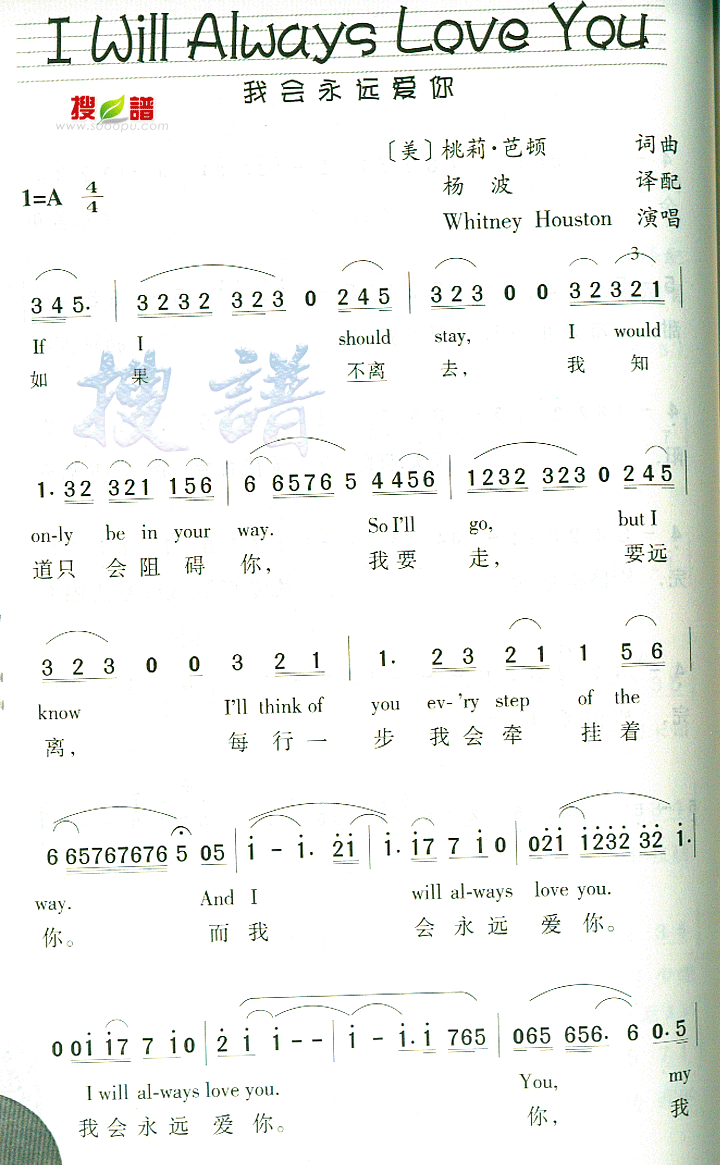 I Will Always Love You
我会永远爱你
搜谱
www.sooopu.com
〔美〕桃莉·芭顿 词曲
1=A 4/4 杨 波 译配
Whitney Houston 演唱
3 4 5. | 3 2 3 2 3 2 3 0 2 4 5 | 3 2 3 0 0 3 2 3 2 1 |
If I should stay, I would
如 果 不离 去， 我 知
搜譜
1. 3 2 3 2 1 1 5 6 | 6 6 5 7 6 5 4 4 5 6 | 1 2 3 2 3 2 3 0 2 4 5 |
on-ly be in your way. So I'll go, but I
道只 会阻 碍 你， 我要 走， 要远
3 2 3 0 0 3 2 1 | 1. 2 3 2 1 1 5 6 |
know I'll think of you ev-'ry step of the
离， 每 行 一 步 我 会 牵 挂 着
6 6 5 7 6 7 6 7 6 5 0 5 | i - i. 2 i | i. i 7 7 i 0 | 0 2 i i 2 3 2 3 2 i. |
way. And I will al-ways love you.
你。 而 我 会 永 远 爱 你。
0 0 i i 7 7 i 0 | 2 i i - - | i - i. i 7 6 5 | 0 6 5 6 5 6. 6 0. 5 |
I will al-ways love you. You, my
我 会 永 远 爱 你。 你， 我